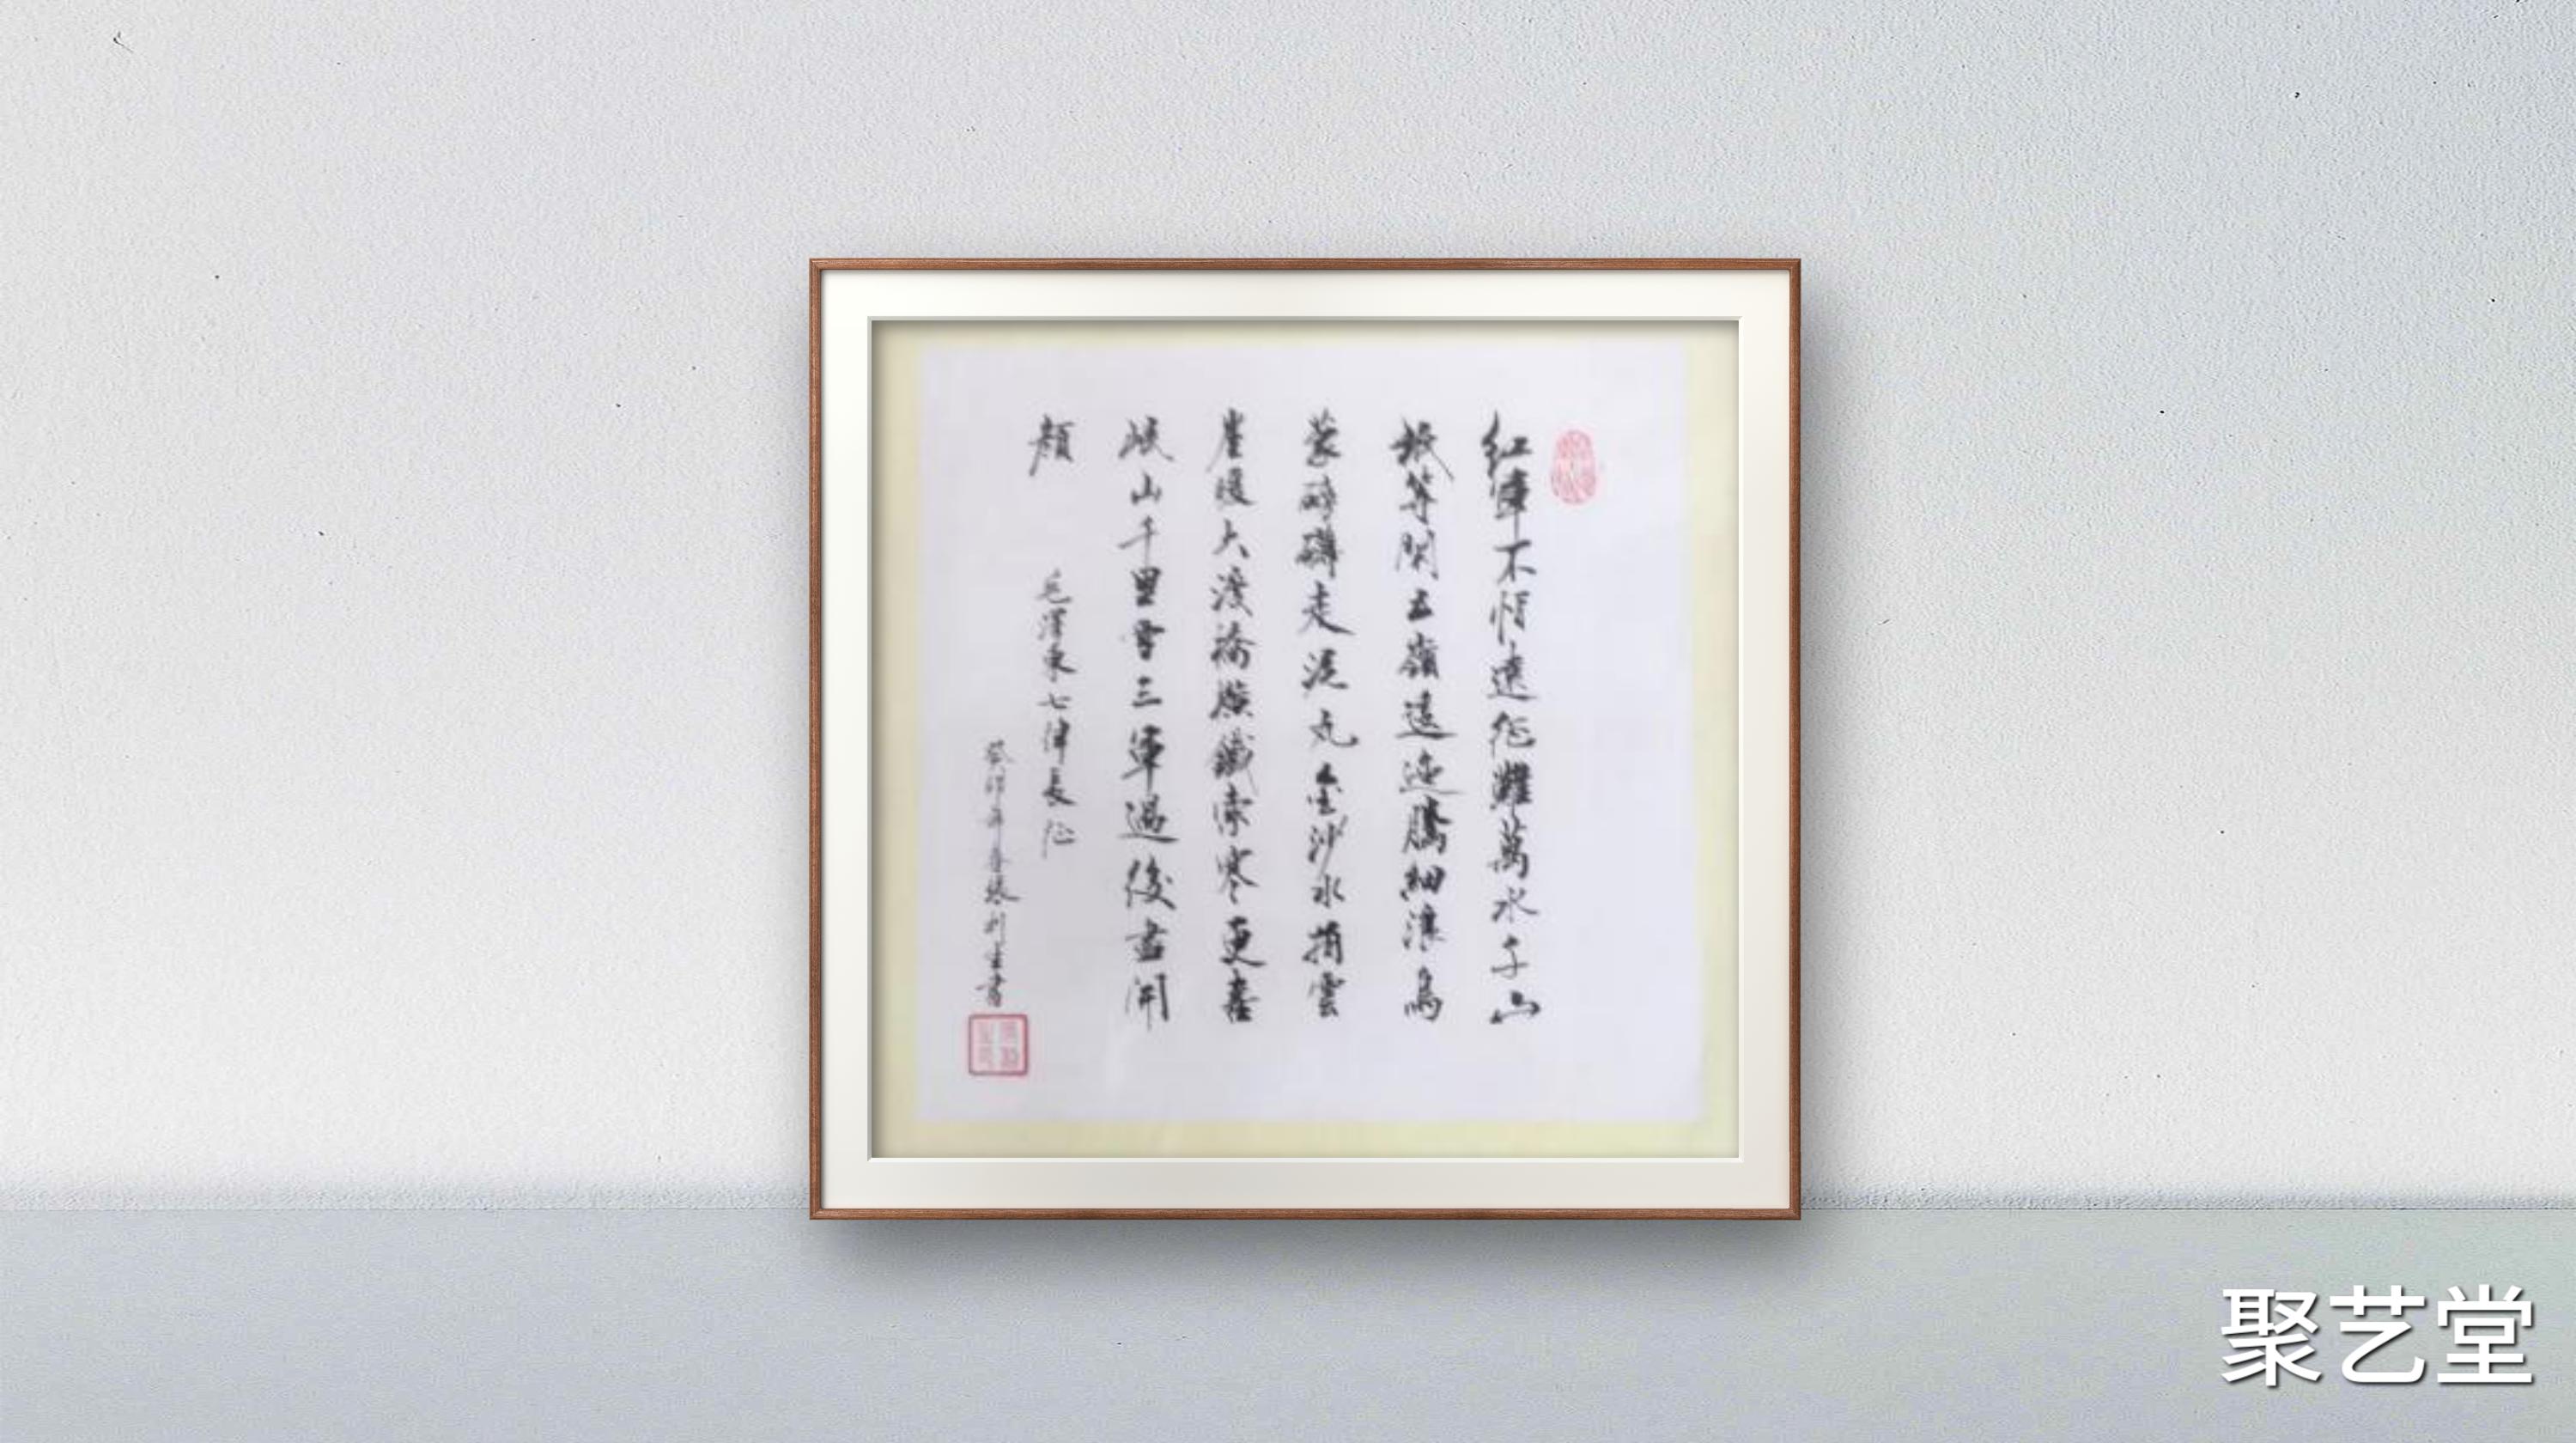 紅軍不怕遠征難萬水千山
祇等閑五嶺逶迤騰細浪烏
蒙磅礴走泥丸金沙水拍雲
崖暖大渡橋橫鐵索寒更喜
岷山千里雪三軍過後盡開
顏 毛澤東七律長征
癸卯年春張利生書
聚艺堂